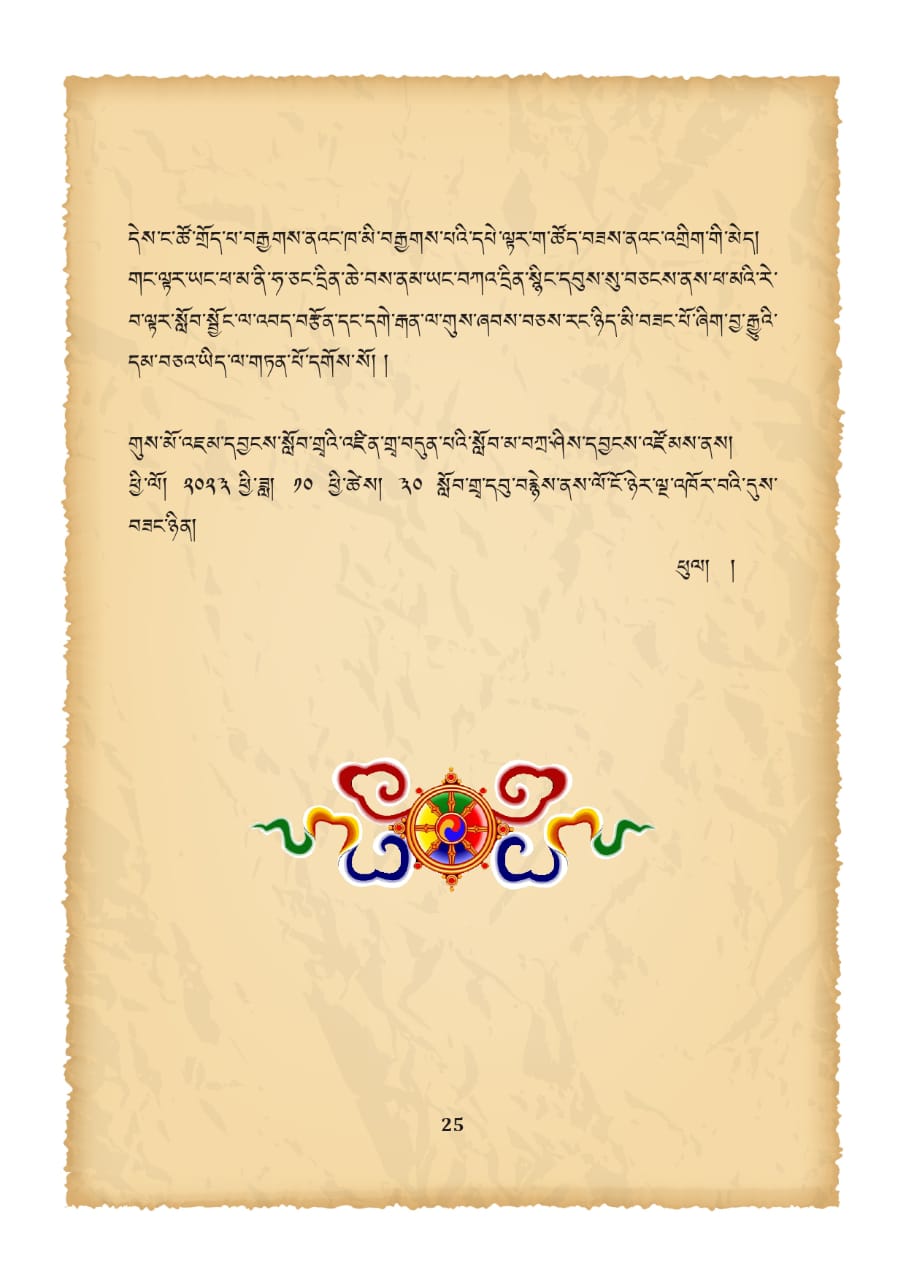 དེས་ང་ཚོ་གྲོད་པ་བརྒྱགས་ནའང་ཁ་མི་བརྒྱགས་པའི་དཔེ་ལྟར་ག་ཚོད་བཟས་ནའང་འགྲིག་གི་མེད།
གང་ལྟར་ཡང་ཕ་མ་ནི་ཧ་ཅང་དྲིན་ཆེ་བས་ནམ་ཡང་བཀའ་དྲིན་སྙིང་དབུས་སུ་བཅངས་ནས་ཕ་མའི་རེ་
བ་ལྟར་སློབ་སྦྱོང་ལ་འབད་བརྩོན་དང་དགེ་རྒན་ལ་གུས་ཞབས་བཅས་རང་ཉིད་མི་བཟང་པོ་ཞིག་བྱ་རྒྱུའི་
དམ་བཅའ་ཡིད་ལ་གཏན་པོ་དགོས་སོ། །
གུས་མོ་འཇམ་དབྱངས་སློབ་གྲྭའི་འཛིན་གྲྭ་བདུན་པའི་སློབ་མ་བཀྲ་ཤིས་དབྱངས་འཛོམས་ནས།
ཕྱི་ལོ། ༢༠༢༣ ཕྱི་ཟླ། ༡༠ ཕྱི་ཚེས། ༣༠ སློབ་གྲྭ་དབུ་བརྙེས་ནས་ལོ་ངོ་ཉེར་ལྔ་འཁོར་བའི་དུས་
བཟང་ཉིན།
ཕུལ། །
25